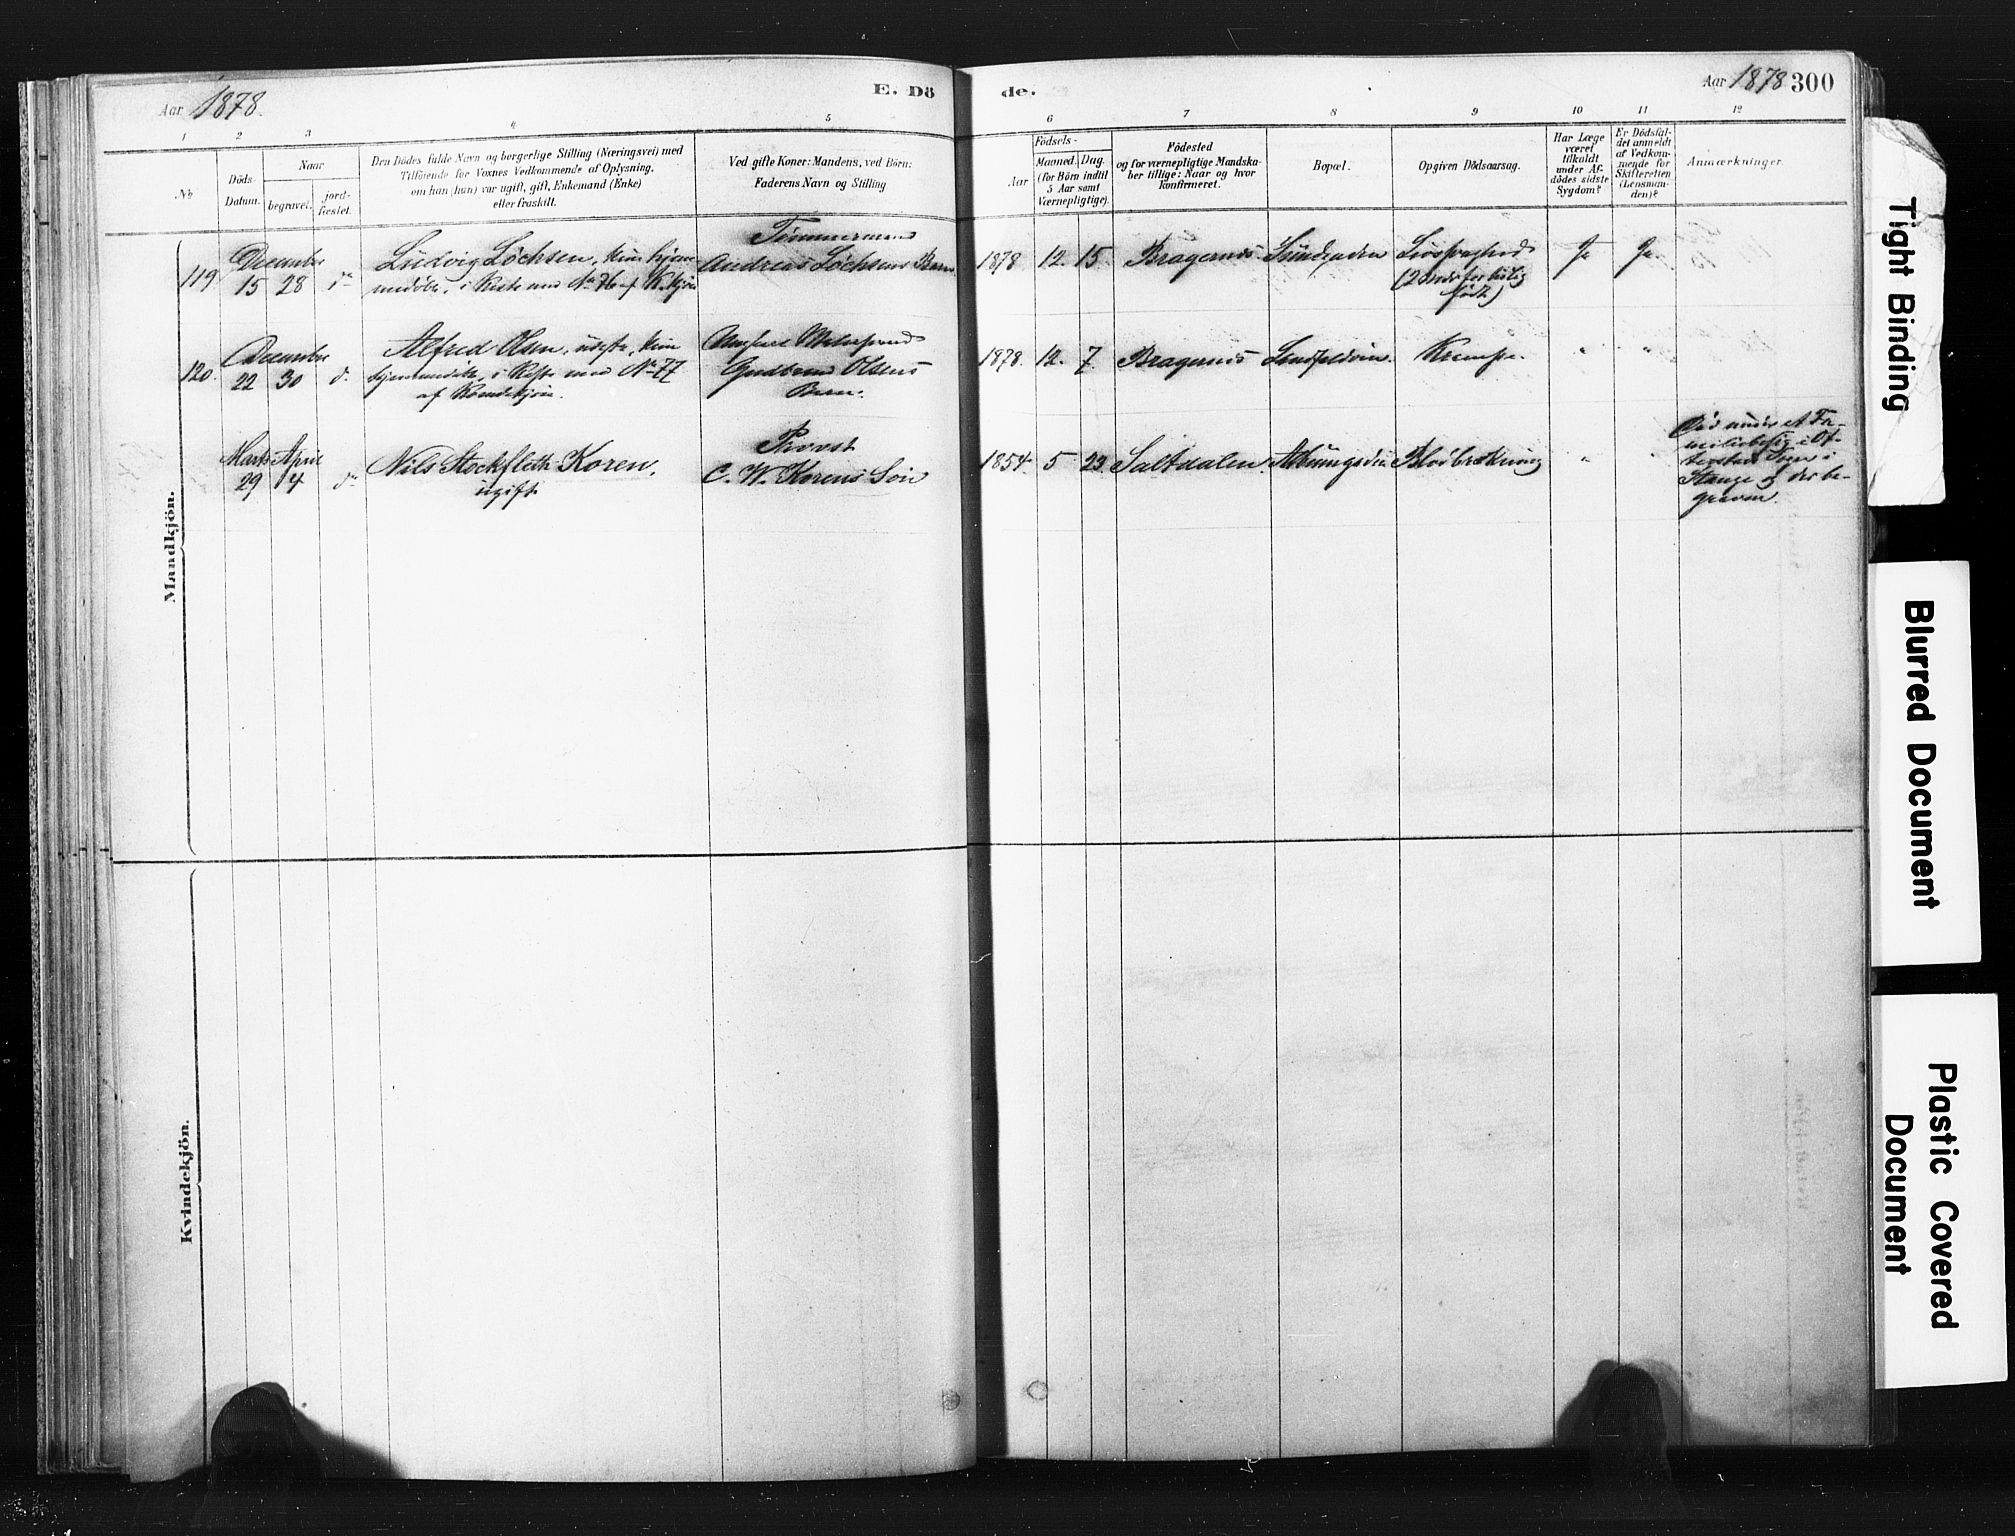 Aar 1878.
E. Dö
de.
Aar 1878 300
1 2 3 4 5
6 7 8 9 10 11 12
No
Döds-
Datum.
Naar
begravet.
jord-
fæstet.
Den Dödes fulde Navn og borgerlige Stilling (Næringsvei) med
Tilföiende for Voxnes Vedkommende af Oplysning,
om han (hun) var ugift, gift, Enkemand (Enke)
eller fraskilt.
Ved gifte Koner: Mandens, ved Börn:
Faderens Navn og Stilling
Födsels-
Aar
Maaned. Dag.
(for Börn indtil
5 Aar samt
Værnepligtige).
Födested
og for værnepligtige Mandska-
ber tillige: Naar og hvor
konfirmeret.
Bopæl.
Opgiven Dödsaarsag.
Har Læge
været
tilkaldt
under Af-
dödes sidste
Sygdom?
Er Dödsfal-
det anmeldt
af Vedkom-
mende for
Skifteretten
(Lensman-
den)?
Anmærkninger.
Mandkjön.
119
December
15 28 do
Ludvig Löchsen, kun hjem-
medöbt, i Kiste med No 76 af K.kjön
Tömmermand
Andreas Löchsens Barn
1878 12. 15. Bragernes
Livssvaghed
(2 Mdr for tidlig
födt)
Ja Ja.
120.
December
22 30 do
Alfred Olsen, uægte, kun
hjemmedöbt, i Kiste med No 77
af Kvindekjön.
Gudbrand Olsens
Barn.
1878. 12. 7. Bragernes
Krampe.
" "
Marts April
29 4 do
Nils Stockfleth Koren,
ugift
Provst
C. W. Korens Sön
1854. 5 23. Saltdalen.
Blodbrækning
" "
Död under et Fa-
miliebesög i Ot-
testad Sogn i
Stange og der be-
graven.
Kvindekjön.
Tight Binding
Blurred Document
Plastic Covered
Document